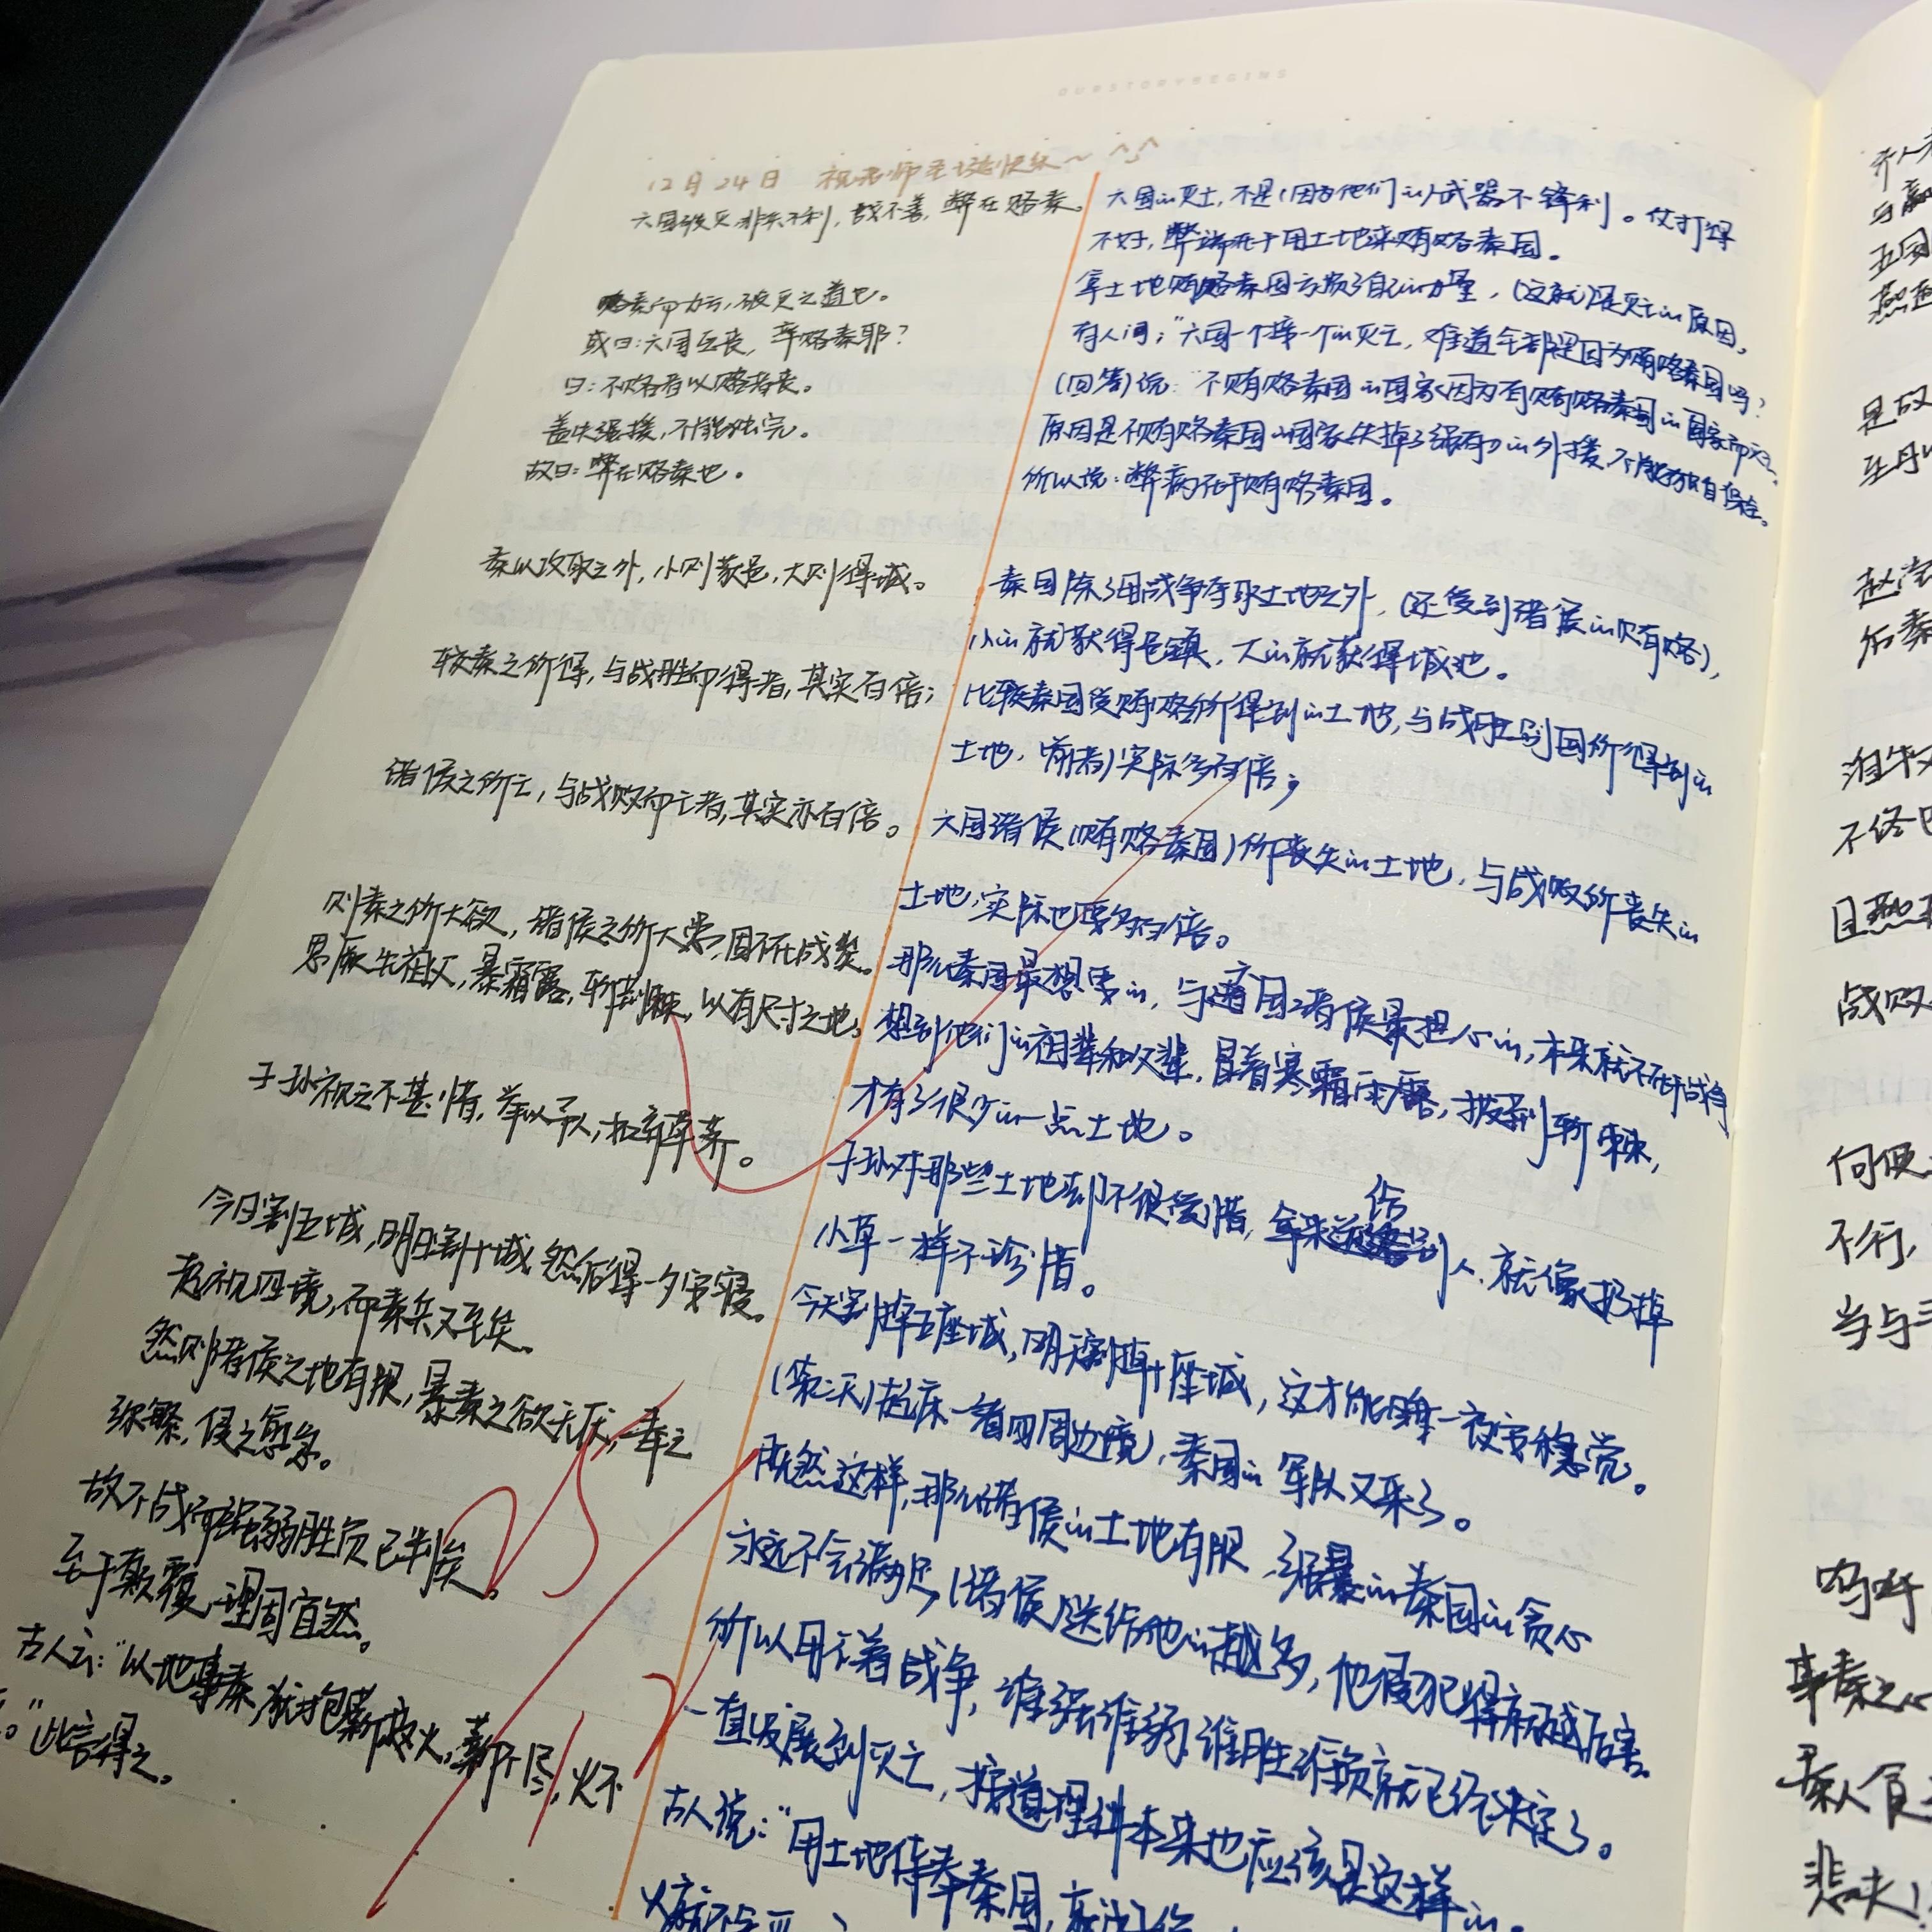 OURSTORYBEGINS
12月24日 祝老师圣诞快乐~ ^◡^
六国破灭,非兵不利,战不善,弊在赂秦。
赂秦而力亏,破灭之道也。
或曰:六国互丧,率赂秦耶?
曰:不赂者以赂者丧。
盖失强援,不能独完。
故曰:弊在赂秦也。
秦以攻取之外,小则获邑,大则得城。
较秦之所得,与战胜而得者,其实百倍;
诸侯之所亡,与战败而亡者,其实亦百倍。
则秦之所大欲,诸侯之所大患,固不在战矣。
思厥先祖父,暴霜露,斩荆棘,以有尺寸之地。
子孙视之不甚惜,举以予人,如弃草芥。
今日割五城,明日割十城,然后得一夕安寝。
起视四境,而秦兵又至矣。
然则诸侯之地有限,暴秦之欲无厌,奉之
弥繁,侵之愈急。
故不战而强弱胜负已判矣。
至于颠覆,理固宜然。
古人云:“以地事秦,犹抱薪救火,薪不尽,火不
。”此言得之。
六国的灭亡,不是(因为他们的)武器不锋利。仗打得
不好,弊端在于用土地来贿赂秦国。
拿土地贿赂秦国亏损了自己的力量,(这就)是灭亡的原因。
有人问:“六国一个接一个的灭亡,难道全部是因为贿赂秦国吗?
(回答)说:“不贿赂秦国的国家因为有贿赂秦国的国家而灭亡。
原因是不贿赂秦国的国家失掉了强有力的外援,不能独自保全。
所以说:弊病在于贿赂秦国。
秦国除了用战争夺取土地之外,(还受到诸侯的贿赂),
小的就获得邑镇,大的就获得城池。
比较秦国受贿赂所得到的土地,与战胜别国所得到的
土地,(前者)实际多百倍;
六国诸侯(贿赂秦国)所丧失的土地,与战败所丧失的
土地,实际也要多百倍。
那么秦国最想要的,与六国诸侯最担心的,本来就不在于战争
想到他们的祖辈和父辈,冒着寒霜雨露,披荆斩棘,
才有了很少的一点土地。
子孙对那些土地却不很爱惜,拿来送给别人,就像扔掉
小草一样不珍惜。
今天割掉五座城,明天割掉十座城,这才能睡一夜安稳觉。
(第二天)起床一看四周边境,秦国的军队又来了。
既然这样,那么诸侯的土地有限,强暴的秦国的贪心
永远不会满足,(诸侯)送给他的越多,他侵犯得就越厉害。
所以用不着战争,谁强谁弱,谁胜谁负就已经决定了。
一直发展到灭亡,按道理讲本来也应该是这样的。
古人说:“用土地侍奉秦国,就
25
1
2
是故
赵
后秦
不终
战败
向使
不行,
当与
呜呼
秦人食